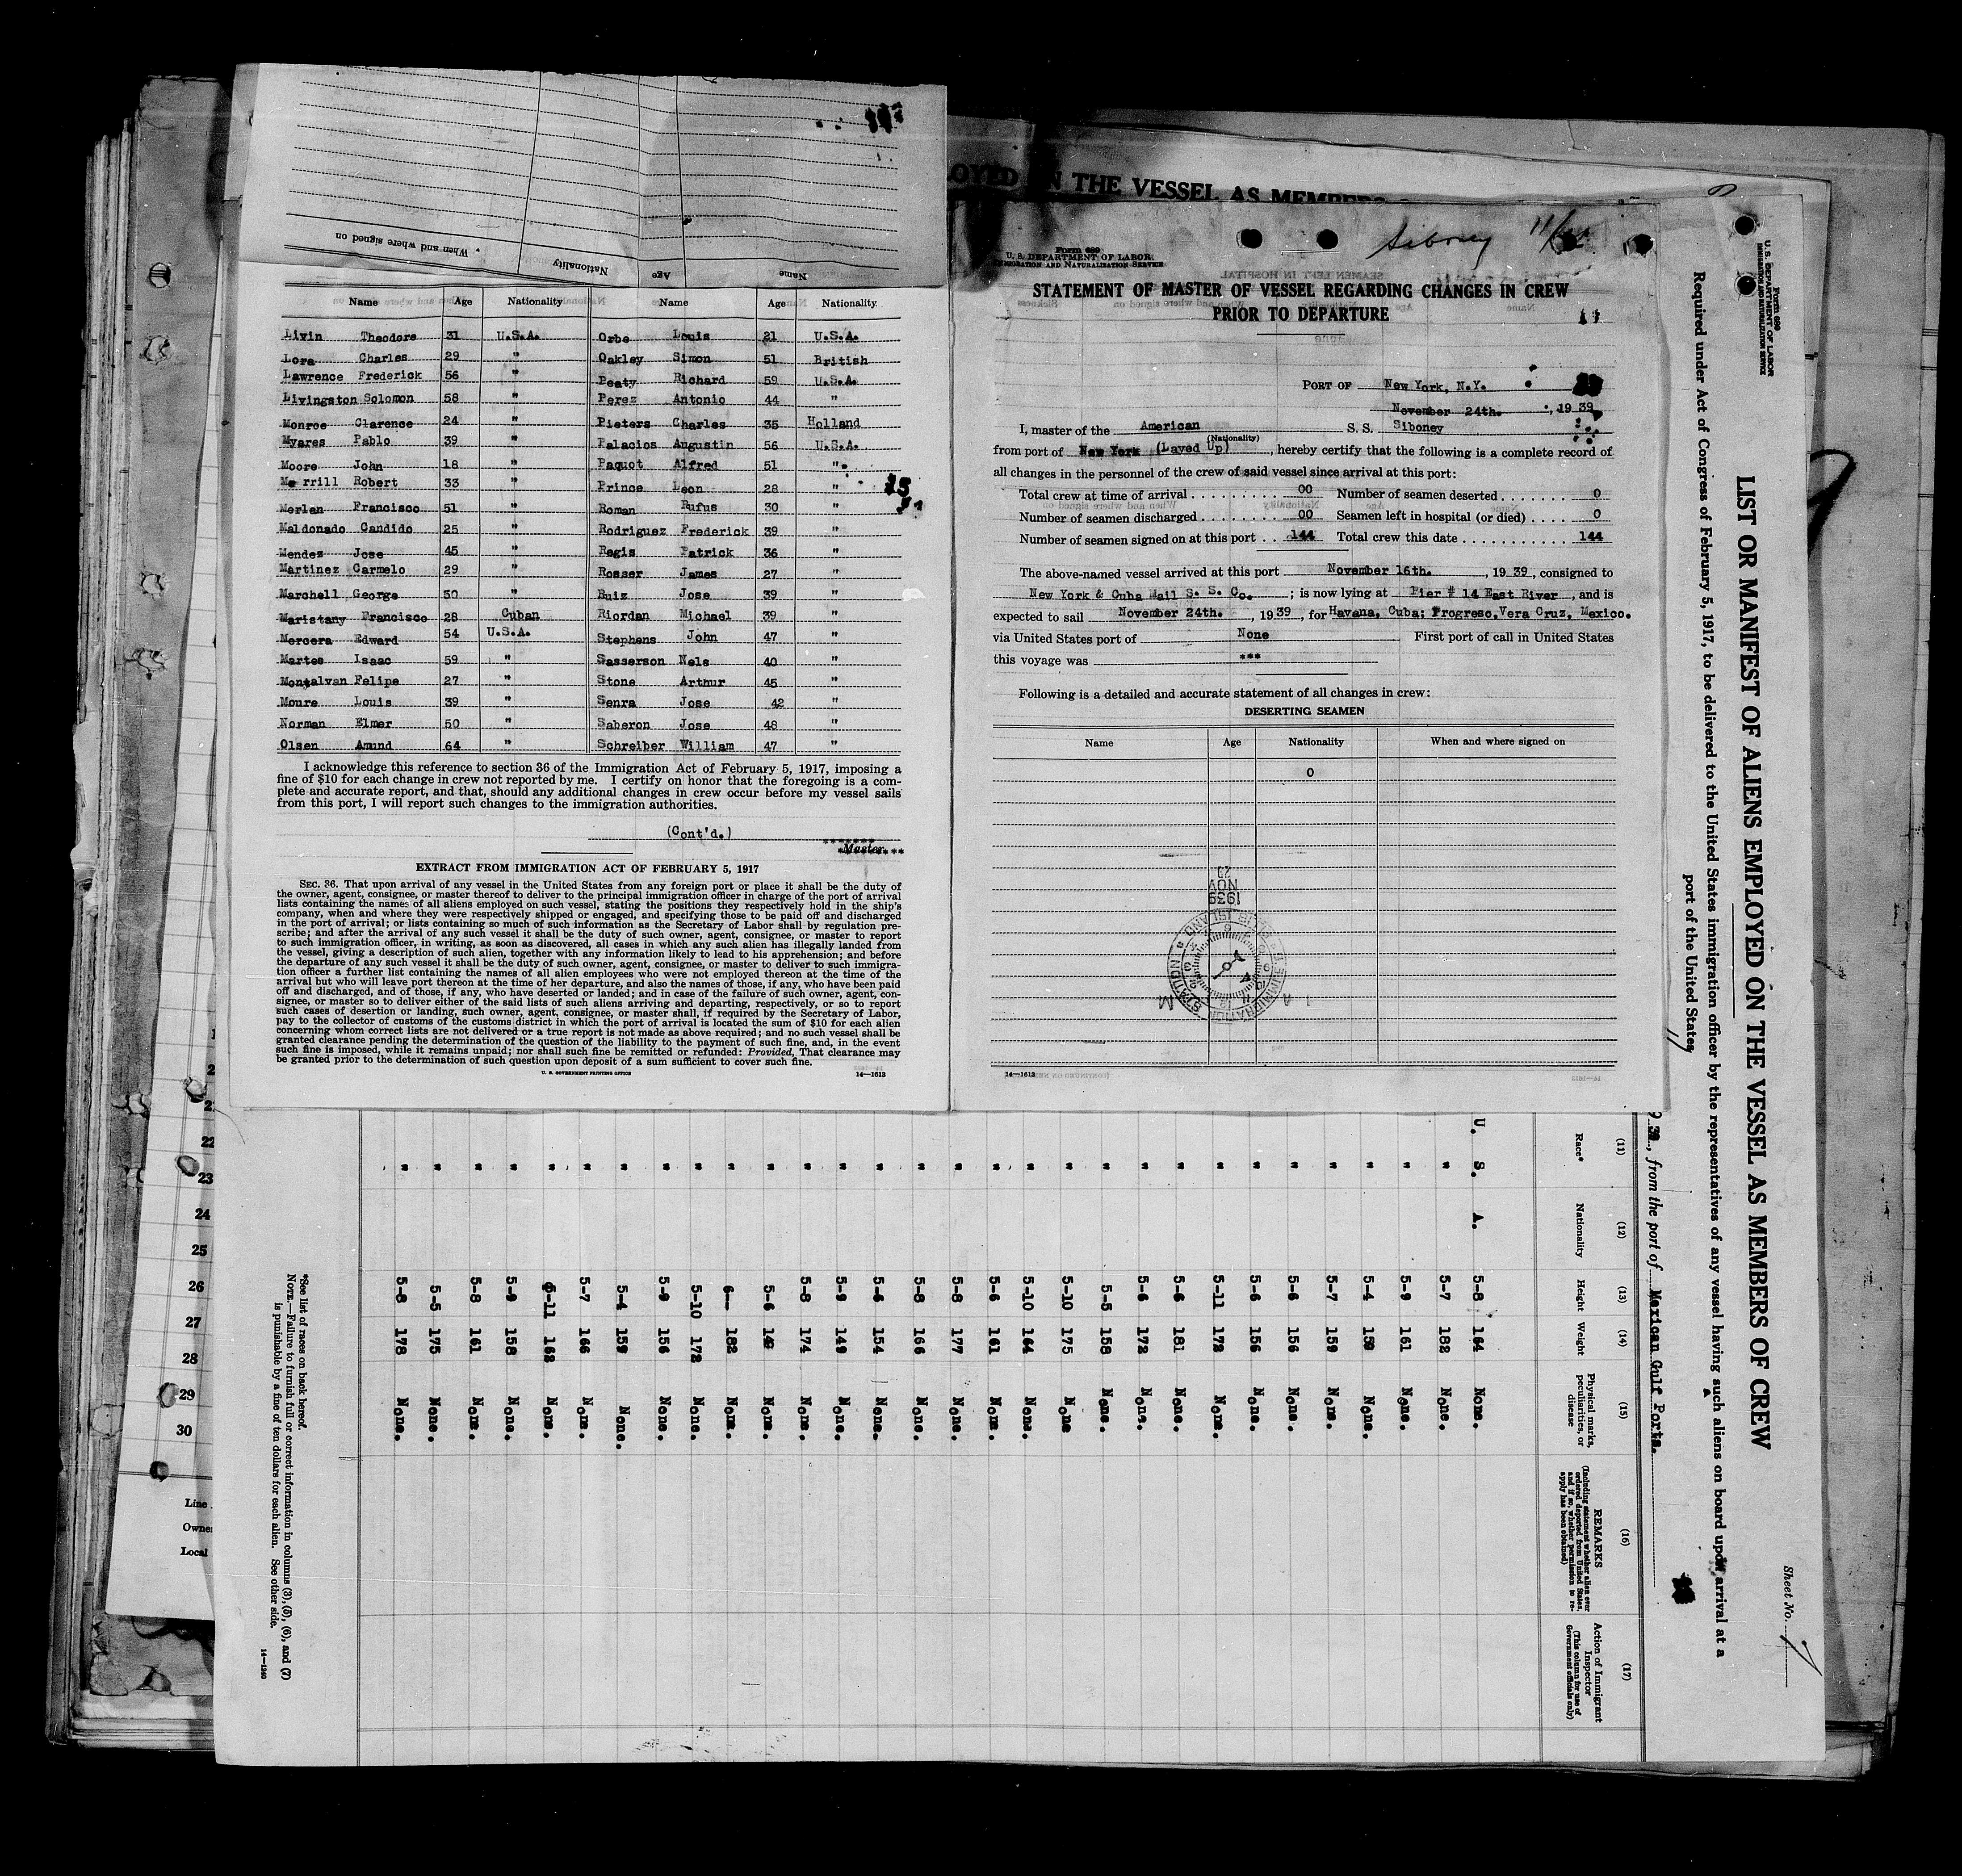 OYED ON THE VESSEL AS MEMBERS
When and where signed on
Nationality
Age
Name
Name Age Nationality Name Age Nationality
Livin Theodore 31 U.S.A. Orbe Louis 21 U.S.A.
Lora Charles 29 " Oakley Simon 51 British
Lawrence Frederick 56 " Peaty Richard 59 U.S.A.
Livingston Solomon 58 " Perez Antonio 44 "
Monroe Clarence 24 " Pieters Charles 35 Holland
Myares Pablo 39 " Palacios Augustin 56 U.S.A.
Moore John 18 " Paquot Alfred 51 "
Merrill Robert 33 " Prince Leon 28 "
Merlan Francisco 51 " Roman Rufus 30 "
Maldonado Candido 25 " Rodriguez Frederick 39 "
Mendez Jose 45 " Regis Patrick 36 "
Martinez Carmelo 29 " Rosser James 27 "
Marchell George 50 " Ruiz Jose 39 "
Maristany Francisco 28 Cuban Riordan Michael 39 "
Mercera Edward 54 U.S.A. Stephens John 47 "
Martes Isaac 59 " Sasserson Nels 40 "
Montalvan Felipe 27 " Stone Arthur 45 "
Moure Louis 39 " Senra Jose 42 "
Norman Elmer 50 " Saberon Jose 48 "
Olsen Amund 64 " Schreiber William 47 "
I acknowledge this reference to section 36 of the Immigration Act of February 5, 1917, imposing a
fine of $10 for each change in crew not reported by me. I certify on honor that the foregoing is a com-
plete and accurate report, and that, should any additional changes in crew occur before my vessel sails
from this port, I will report such changes to the immigration authorities.
(Cont'd.)
Master.
EXTRACT FROM IMMIGRATION ACT OF FEBRUARY 5, 1917
SEC. 36. That upon arrival of any vessel in the United States from any foreign port or place it shall be the duty of
the owner, agent, consignee, or master thereof to deliver to the principal immigration officer in charge of the port of arrival
lists containing the names of all aliens employed on such vessel, stating the positions they respectively hold in the ship's
company, when and where they were respectively shipped or engaged, and specifying those to be paid off and discharged
in the port of arrival; or lists containing so much of such information as the Secretary of Labor shall by regulation pre-
scribe; and after the arrival of any such vessel it shall be the duty of such owner, agent, consignee, or master to report
to such immigration officer, in writing, as soon as discovered, all cases in which any such alien has illegally landed from
the vessel, giving a description of such alien, together with any information likely to lead to his apprehension; and before
the departure of any such vessel it shall be the duty of such owner, agent, consignee, or master to deliver to such immigra-
tion officer a further list containing the names of all alien employees who were not employed thereon at the time of the
arrival but who will leave port thereon at the time of her departure, and also the names of those, if any, who have been paid
off and discharged, and of those, if any, who have deserted or landed; and in case of the failure of such owner, agent, con-
signee, or master so to deliver either of the said lists of such aliens arriving and departing, respectively, or so to report
such cases of desertion or landing, such owner, agent, consignee, or master shall, if required by the Secretary of Labor,
pay to the collector of customs of the customs district in which the port of arrival is located the sum of $10 for each alien
concerning whom correct lists are not delivered or a true report is not made as above required; and no such vessel shall be
granted clearance pending the determination of the question of the liability to the payment of such fine, and, in the event
such fine is imposed, while it remains unpaid; nor shall such fine be remitted or refunded: Provided, That clearance may
be granted prior to the determination of such question upon deposit of a sum sufficient to cover such fine.
U. S. GOVERNMENT PRINTING OFFICE 14—1613
Siboney
Form 689
U. S. DEPARTMENT OF LABOR
IMMIGRATION AND NATURALIZATION SERVICE
STATEMENT OF MASTER OF VESSEL REGARDING CHANGES IN CREW
PRIOR TO DEPARTURE
PORT OF New York, N.Y.
November 24th. , 19 39
I, master of the American S. S. Siboney
(Nationality)
from port of New York (Layed Up) , hereby certify that the following is a complete record of
all changes in the personnel of the crew of said vessel since arrival at this port:
Total crew at time of arrival 00 Number of seamen deserted 0
Number of seamen discharged 00 Seamen left in hospital (or died) 0
Number of seamen signed on at this port 144 Total crew this date 144
The above-named vessel arrived at this port November 16th. , 19 39 , consigned to
New York & Cuba Mail S. S. Co. ; is now lying at Pier # 14 East River , and is
expected to sail November 24th. , 19 39 , for Havana, Cuba; Progreso, Vera Cruz, Mexico.
via United States port of None First port of call in United States
this voyage was ***
Following is a detailed and accurate statement of all changes in crew:
DESERTING SEAMEN
Name Age Nationality When and where signed on
0
1939
NOV
IMMIGRATION STATION
ELLIS ISLAND
14—1613
Form 680
U. S. DEPARTMENT OF LABOR
IMMIGRATION AND NATURALIZATION SERVICE
Sheet No.
LIST OR MANIFEST OF ALIENS EMPLOYED ON THE VESSEL AS MEMBERS OF CREW
Required under Act of Congress of February 5, 1917, to be delivered to the United States immigration officer by the representatives of any vessel having such aliens on board upon arrival at a
port of the United States
39, from the port of Mexican Gulf Ports.
(11) (12) (13) (14) (15) (16) (17)
Race* Nationality Height Weight Physical marks, peculiarities, or disease REMARKS (Including statement whether alien ever ordered deported from United States, and if so, whether permission to re-apply has been obtained) Action of Immigrant Inspector (This column for use of Government officials only)
U. S. A. 5-8 164 None.
" 5-7 182 None.
" 5-9 161 None.
" 5-4 None.
" 5-7 159 None.
" 5-6 156 None.
" 5-6 156 None.
" 5-11 172 None.
" 5-6 181 None.
" 5-6 172 None.
" 5-5 158 None.
" 5-10 175 None
" 5-10 164 None.
" 5-6 161 None.
" 5-8 177 None.
" 5-8 166 None.
" 5-6 154 None.
" 5-9 149 None.
" 5-8 174 None.
" 5-6 None.
" 6— 182 None.
" 5-10 172 None.
" 5-9 156 None.
" 5-4 159 None.
" 5-7 166 None.
" 5-11 162 None.
" 5-9 158 None.
" 5-8 161 None.
" 5-5 175 None.
" 5-8 178 None.
*See list of races on back hereof.
NOTE.—Failure to furnish full or correct information in columns (3), (5), (6), and (7)
is punishable by a fine of ten dollars for each alien. See other side.
14—1240
22
23
24
25
26
27
28
29
30
Line
Owner
Local